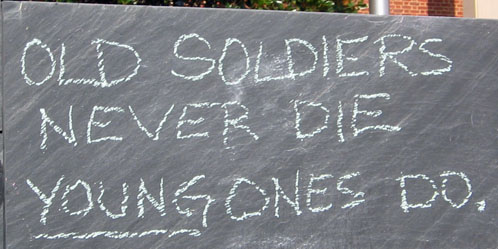 OLD SOLDIERS
NEVER DIE
YOUNG ONES DO.